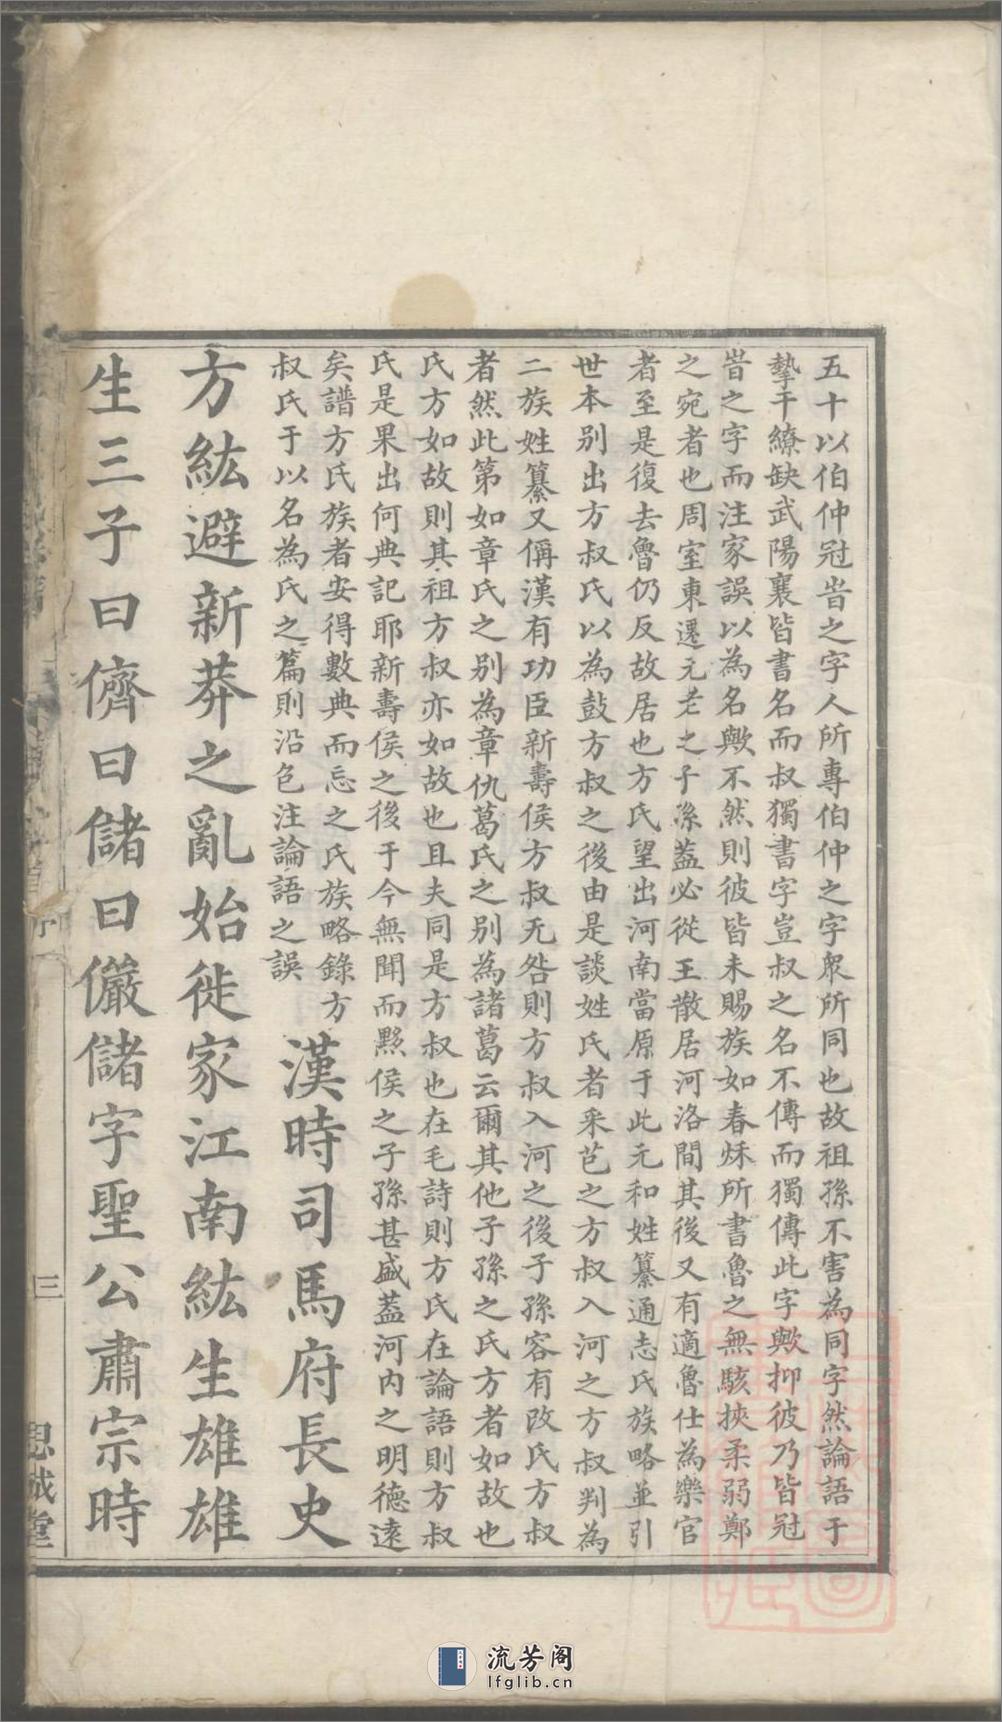 五十以伯仲冠峕之字人所專伯仲之字衆所同也故祖孫不害為同字然論語于
摯干繚缺武陽襄皆書名而叔獨書字豈叔之名不傳而獨傳此字歟抑彼乃皆冠
峕之字而注家誤以為名歟不然則彼皆未賜族如春秌所書魯之無駭挾柔弱鄭
之宛者也周室東遷元老之子孫葢必從王散居河洛間其後又有適魯仕為樂官
者至是復去魯仍反故居也方氏望出河南當原于此元和姓纂通志氏族略並引
世本別出方叔氏以為鼓方叔之後由是談姓氏者采芑之方叔入河之方叔判為
二族姓纂又偁漢有功臣新壽侯方叔无咎則方叔入河之後子孫容有改氏方叔
者然此第如章氏之別為章仇葛氏之別為諸葛云爾其他子孫之氏方者如故也
氏方如故則其祖方叔亦如故也且夫同是方叔也在毛詩則方氏在論語則方叔
氏是果出何典記耶新壽侯之後于今無聞而黟侯之子孫甚盛葢河內之明德遠
矣譜方氏族者安得數典而忘之氏族略錄方
叔氏于以名為氏之篇則沿包注論語之誤
漢時司馬府長史
方紘避新莽之亂始徙家江南紘生雄雄
生三子曰儕曰儲曰儼儲字聖公肅宗時
序
三
思誠堂
流芳阁
lfglib.cn